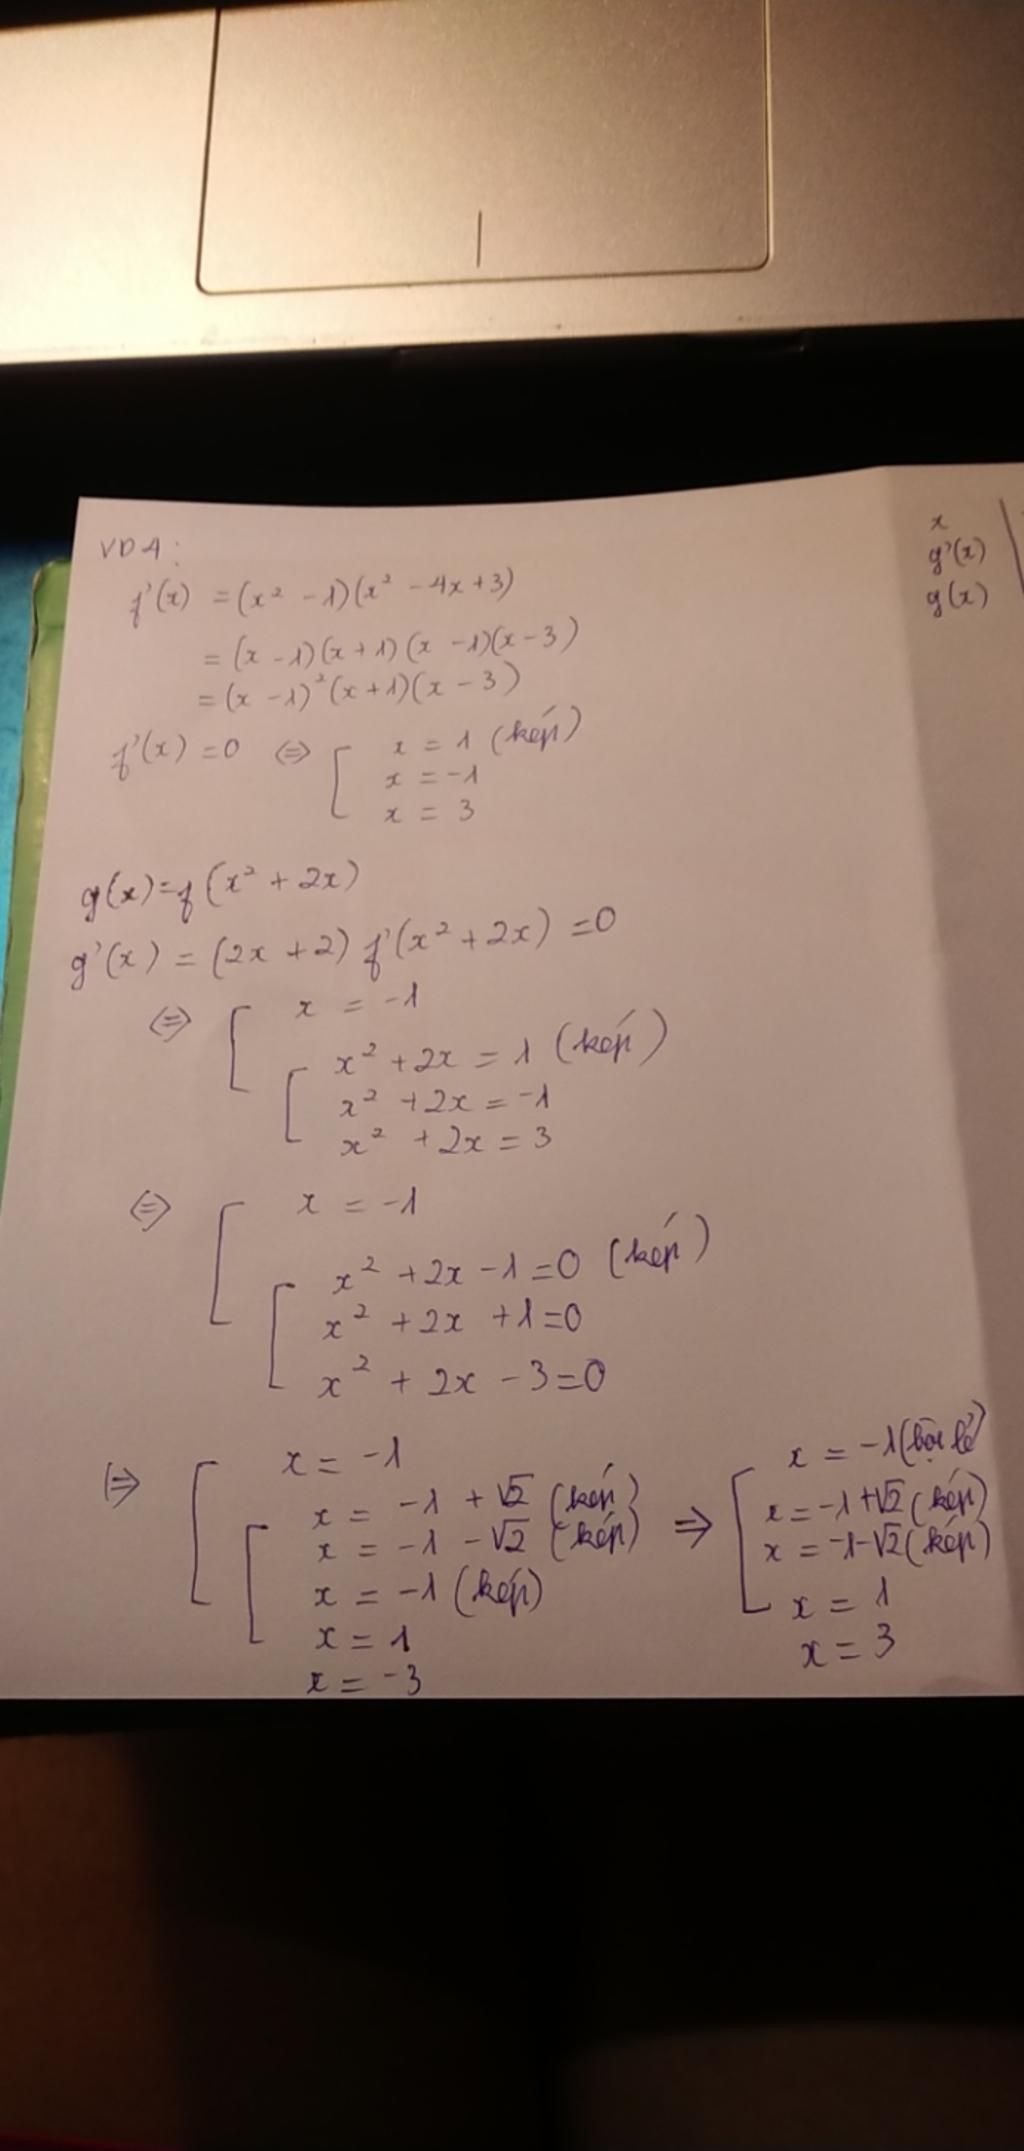 VD4:
f'(x) = (x² - 1)(x² - 4x + 3)
= (x - 1)(x + 1)(x - 1)(x - 3)
= (x - 1)²(x + 1)(x - 3)
f'(x) = 0 ⇔ [ x = 1 (kép)
x = -1
x = 3
g(x) = f(x² + 2x)
g'(x) = (2x + 2) f'(x² + 2x) = 0
⇔ [ x = -1
[ x² + 2x = 1 (kép)
x² + 2x = -1
x² + 2x = 3
⇔ [ x = -1
[ x² + 2x - 1 = 0 (kép)
x² + 2x + 1 = 0
x² + 2x - 3 = 0
⇔ [ x = -1
[ x = -1 + √2 (kép)
x = -1 - √2 (kép)
x = -1 (kép)
x = 1
x = -3
⇒ [ x = -1 (bội lẻ)
x = -1 + √2 (kép)
x = -1 - √2 (kép)
x = 1
x = 3
x
g'(x)
g(x)